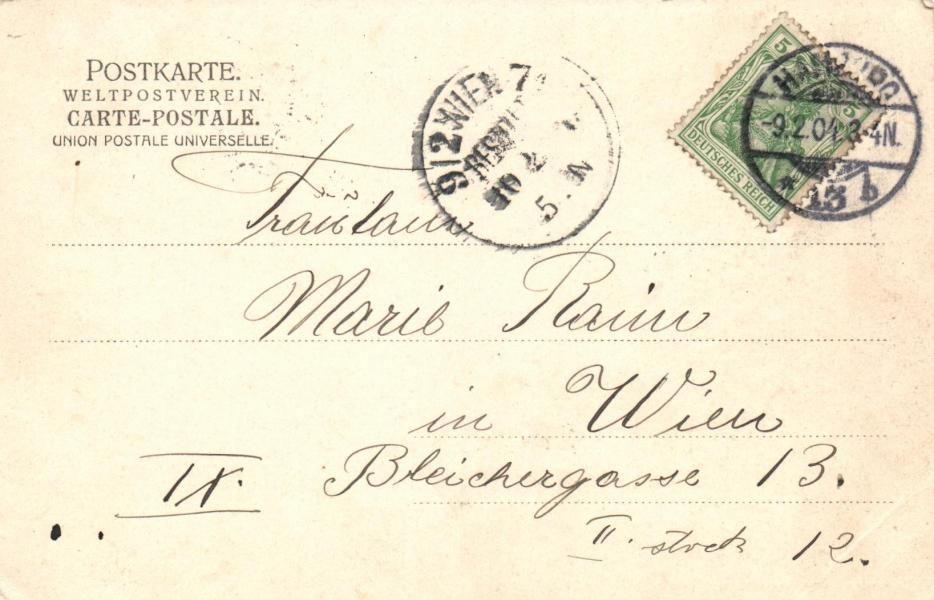 POSTKARTE.
WELTPOSTVEREIN.
CARTE-POSTALE.
UNION POSTALE UNIVERSELLE.
9/2 WIEN 7
10 2
5. N
5
5
DEUTSCHES REICH
HAMBURG
-9.2.04.3-4N.
* 13 b
Fräulein
Marie
in Wien
IX. Bleichergasse 13.
II. stock 12.